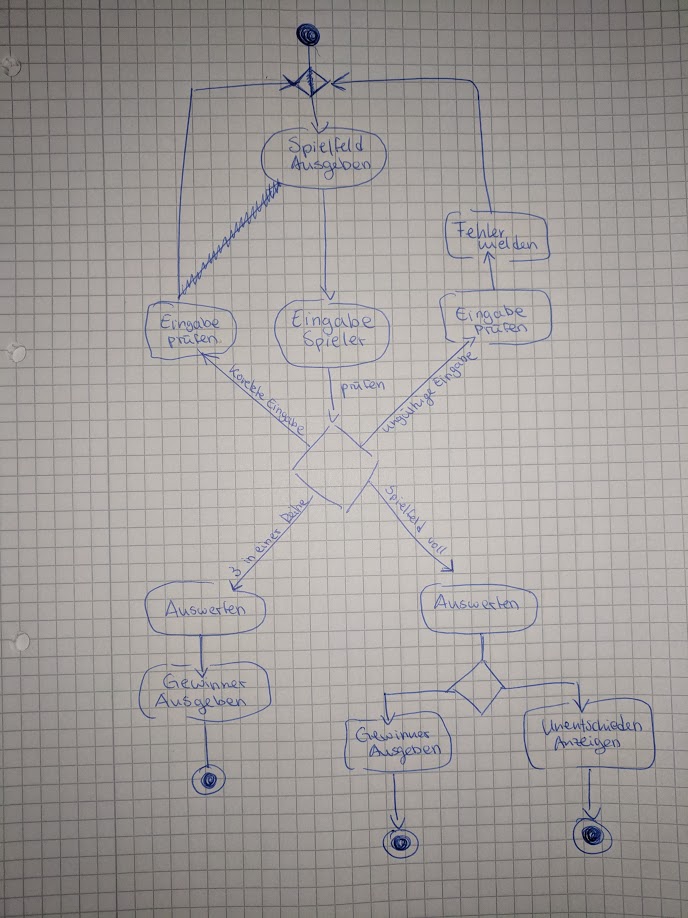 Spielfeld
Ausgeben
Fehler
melden
Eingabe
prüfen.
Eingabe
Spieler
Eingabe
Prüfen
prüfen
Korekte Eingabe
ungültige Eingabe
3 in einer Reihe
Spielfeld voll
Auswerten
Auswerten
Gewinner
Ausgeben
Gewinner
Ausgeben
Unentschieden
Anzeigen